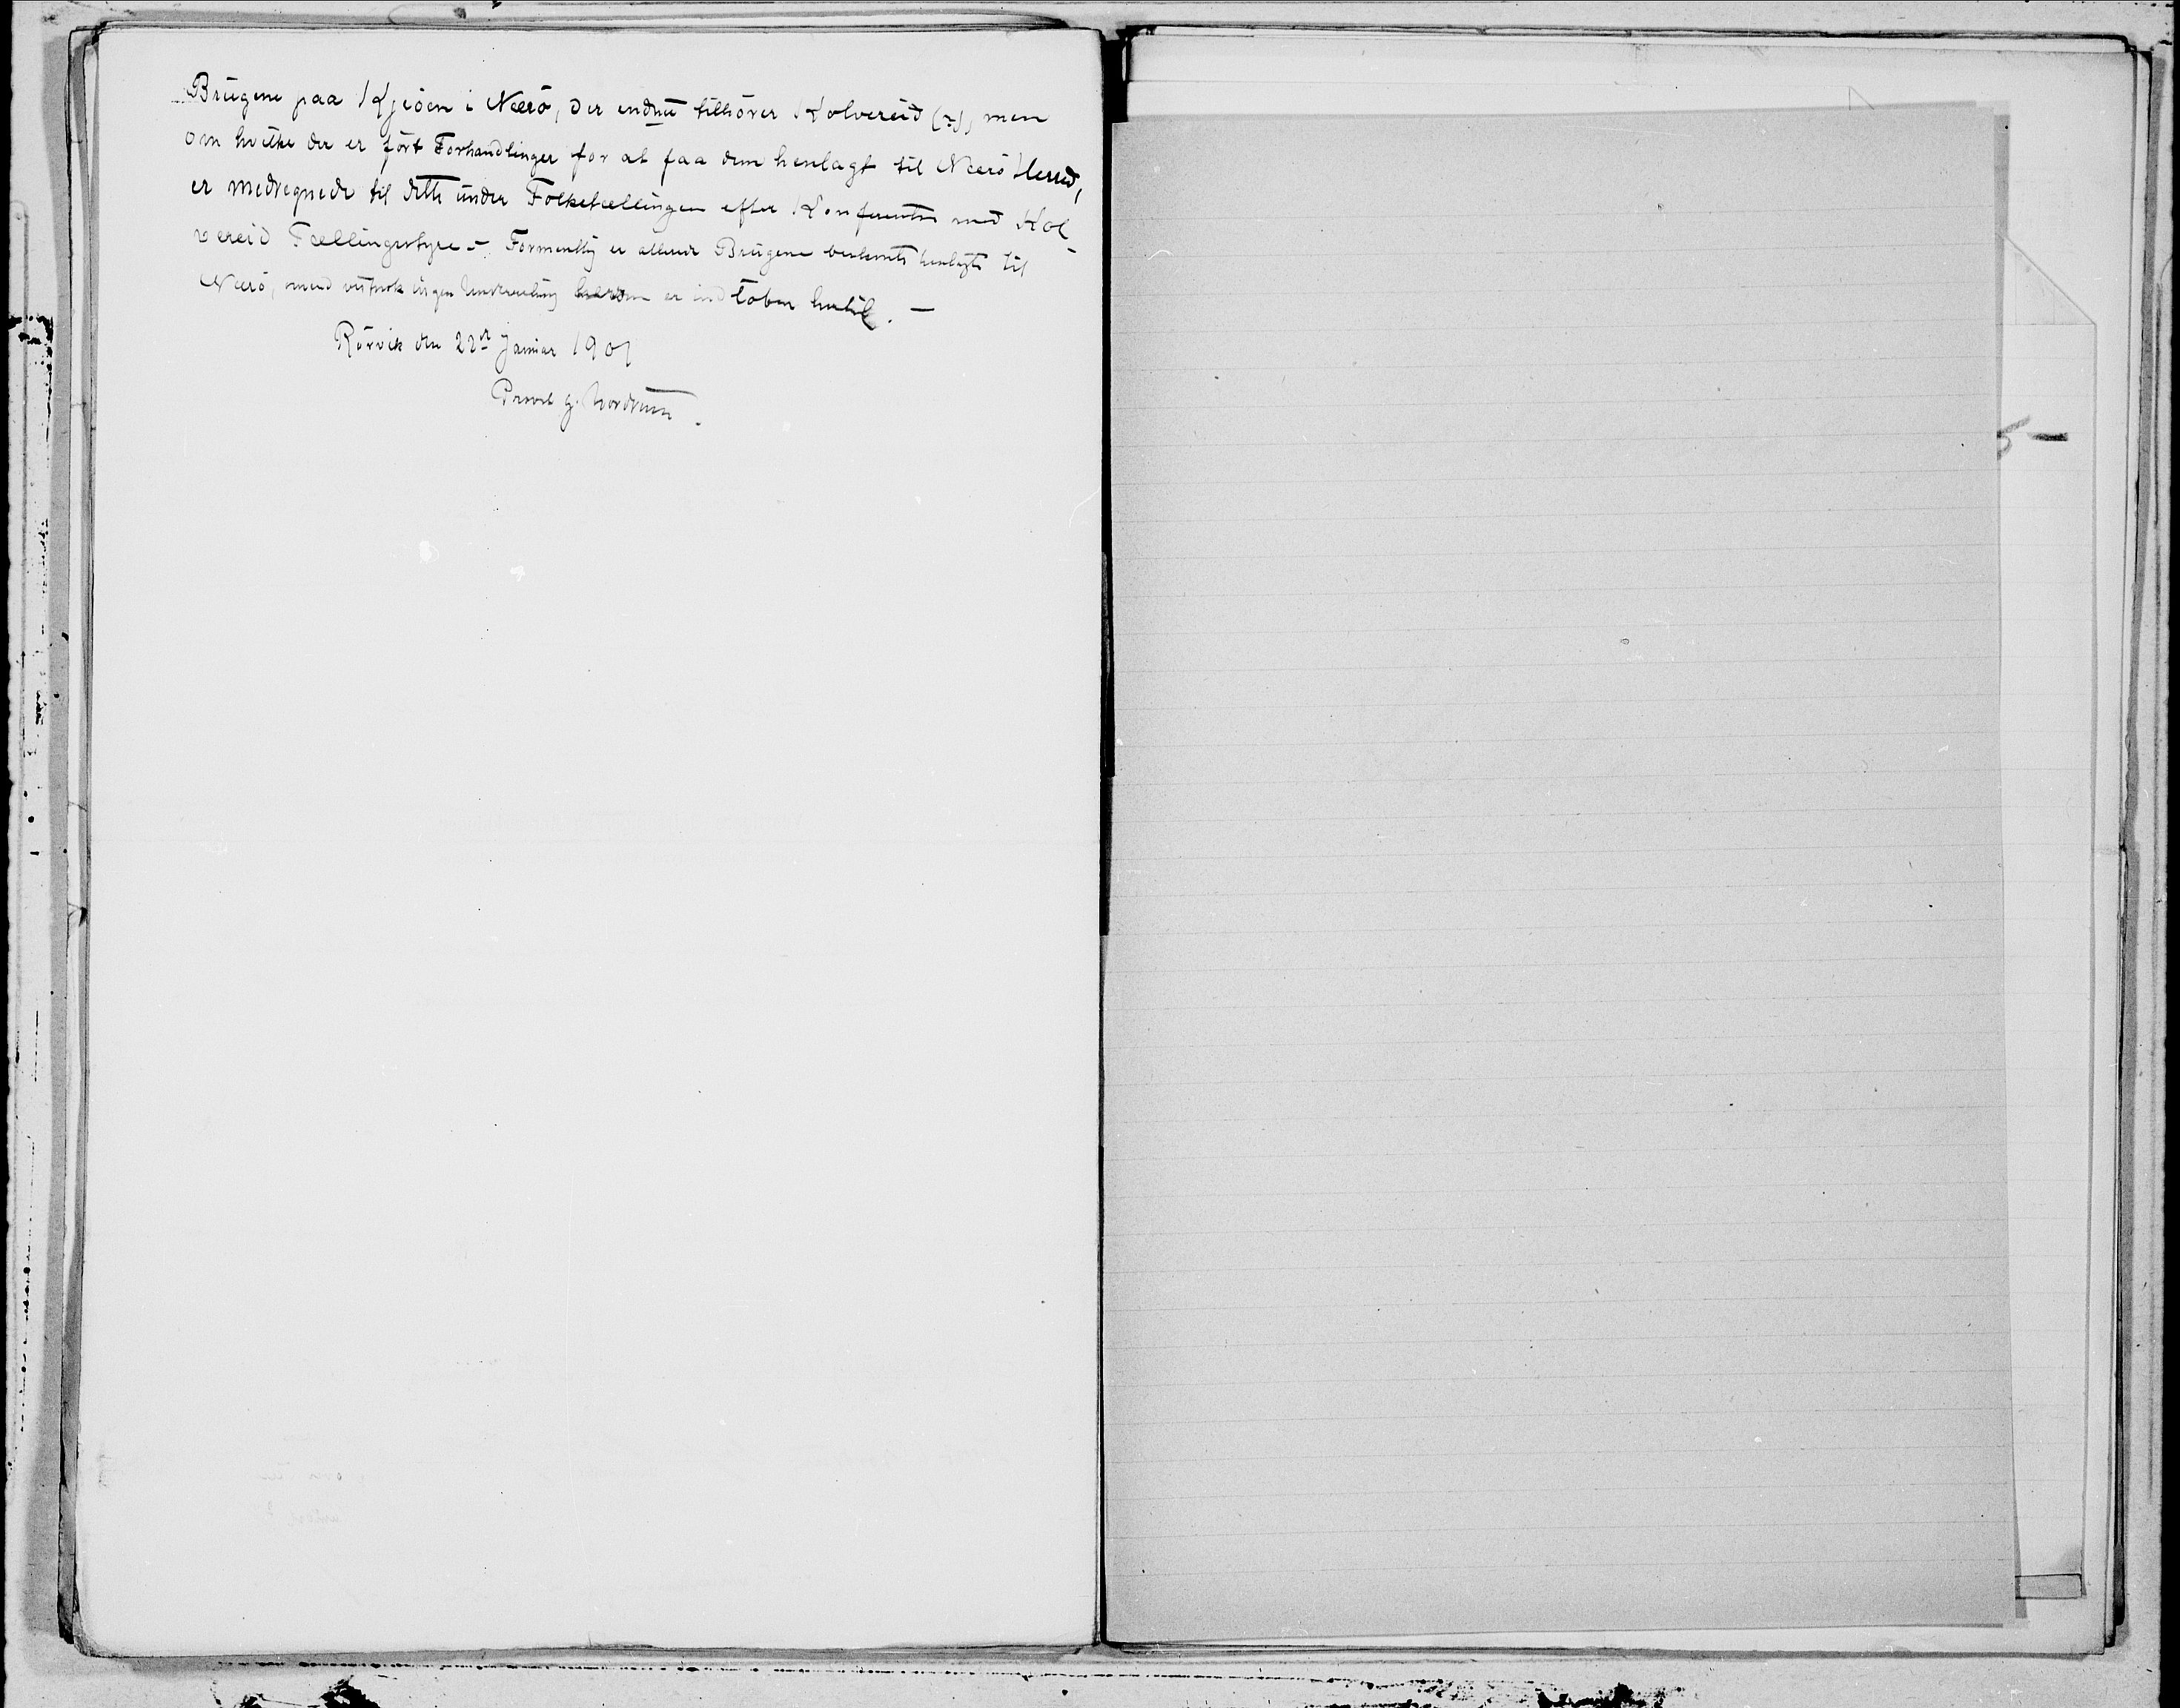 Brugene paa Kjeöen i Nærö, der endnu tilhörer Kolvereid (?), men
om hvilke der er fört Forhandlinger for at faa dem henlagt til Nærö Herred,
er medregnede til dette under Folketællingen efter Konferentse med Kol-
vereid Tællingsstyre – Formentlig er allerede Brugene bestemte henlagte til
Nærö, ingen er indloben hertil. –
Rörvik den 22de Januar 1901